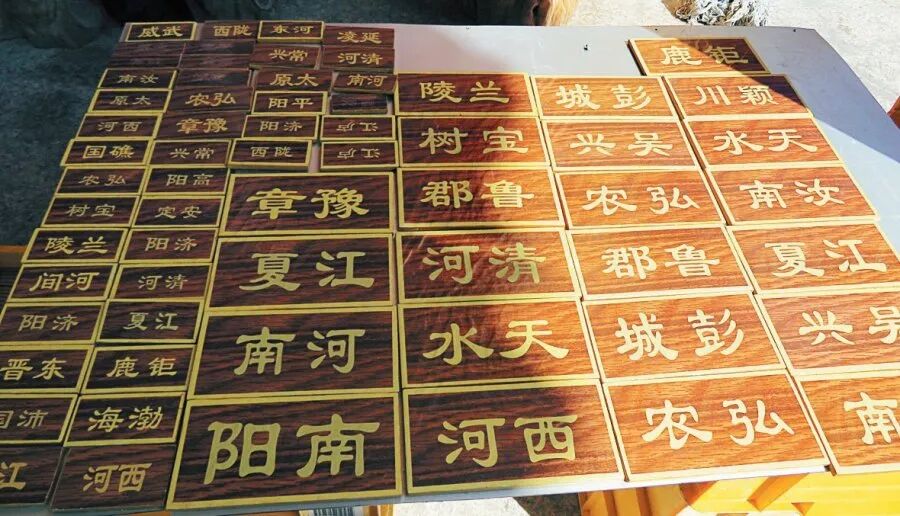 武威
汝南
太原
西河
礁国
弘农
宝树
兰陵
河间
济阳
东晋
沛国
江
常兴
高阳
安定
济阳
清河
江夏
钜鹿
渤海
西河
陇西
弘农
豫章
河东
常兴
太原
平阳
济阳
陇西
延凌
清河
河南
豫章
江夏
河南
南阳
兰陵
宝树
鲁郡
清河
天水
西河
彭城
吴兴
弘农
鲁郡
彭城
弘农
钜鹿
颖川
天水
汝南
江夏
吴兴
南